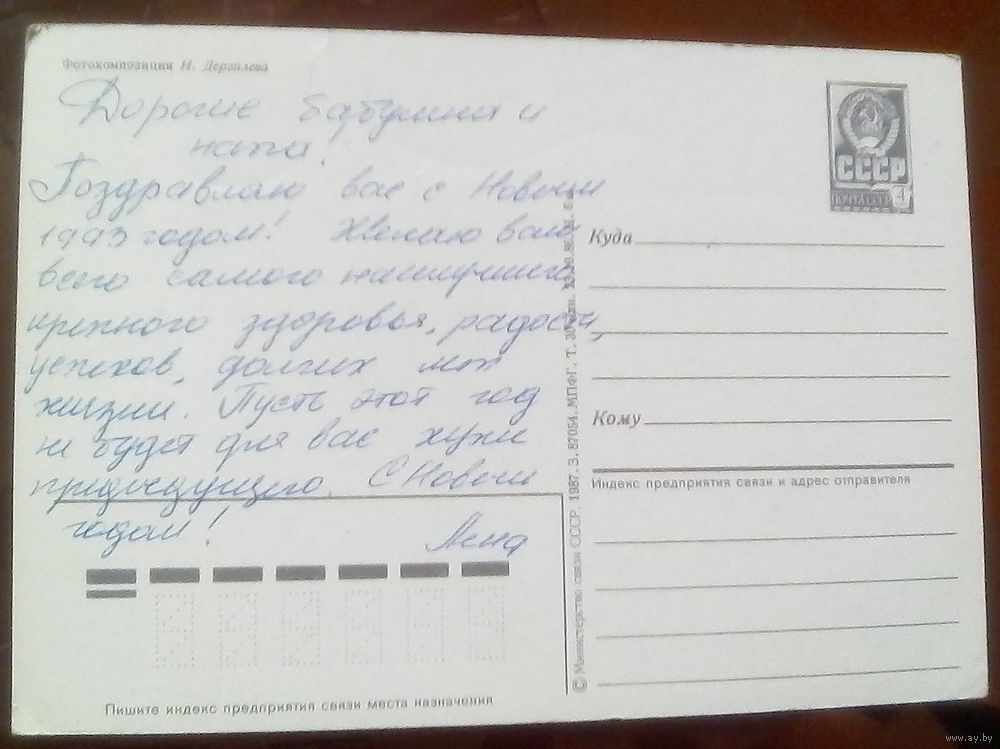 Фотокомпозиция И. Дергилева
Дорогие бабулина и
папа!
Поздравляю вас с Новым
1993 годом! Желаю вам
всего самого наилучшего
крепкого здоровья, радости,
успехов, долгих лет
жизни. Пусть этот год
не будет для вас хуже
предыдущего. С Новым
годом!
Лена
СССР
ПОЧТА СССР 4
Куда
Кому
Индекс предприятия связи и адрес отправителя
© Министерство связи СССР. 1987. З. 87054. МПФГ. Т.
Пишите индекс предприятия связи места назначения
www.ay.by